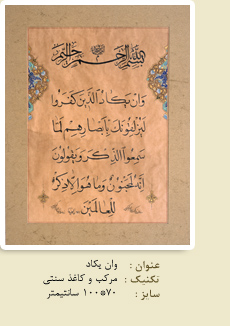 بسم الله الرحمن الرحیم
وَاِنْ یَکادُ الَّذینَ کَفَروا
لَیُزْلِقونَکَ بِاَبْصارِهِمْ لَمّا
سَمِعُوا الذِّکْرَ وَیَقولونَ
اِنَّهُ لَمَجْنونٌ وَما هُوَ اِلّا ذِکْرٌ
لِلْعالَمینَ
عنوان : وان یکاد
تکنیک : مرکب و کاغذ سنتی
سایز : ۷۰*۱۰۰ سانتیمتر